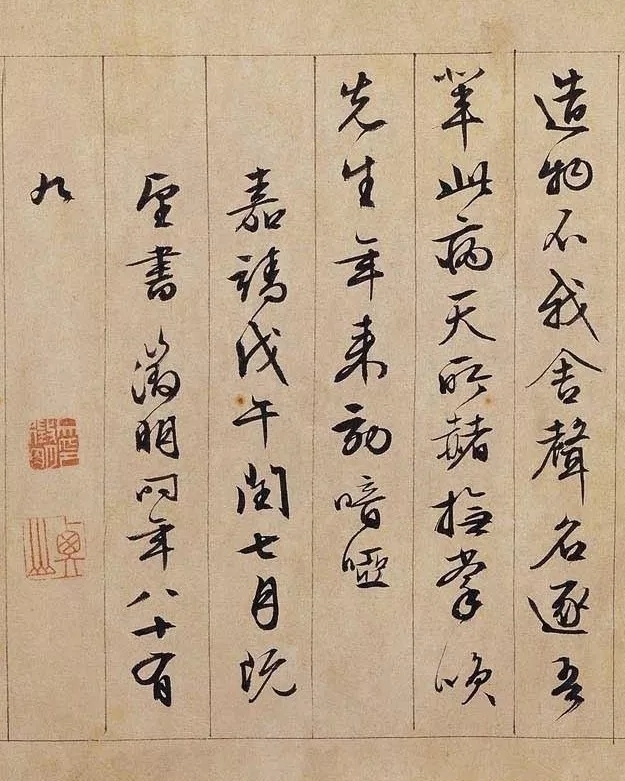 造物不我舍聲名逐吾
輩此病天所赭撫掌咲
先生年来効喑啞
嘉靖戊午閏七月既
望書 徵明時年八十有
九